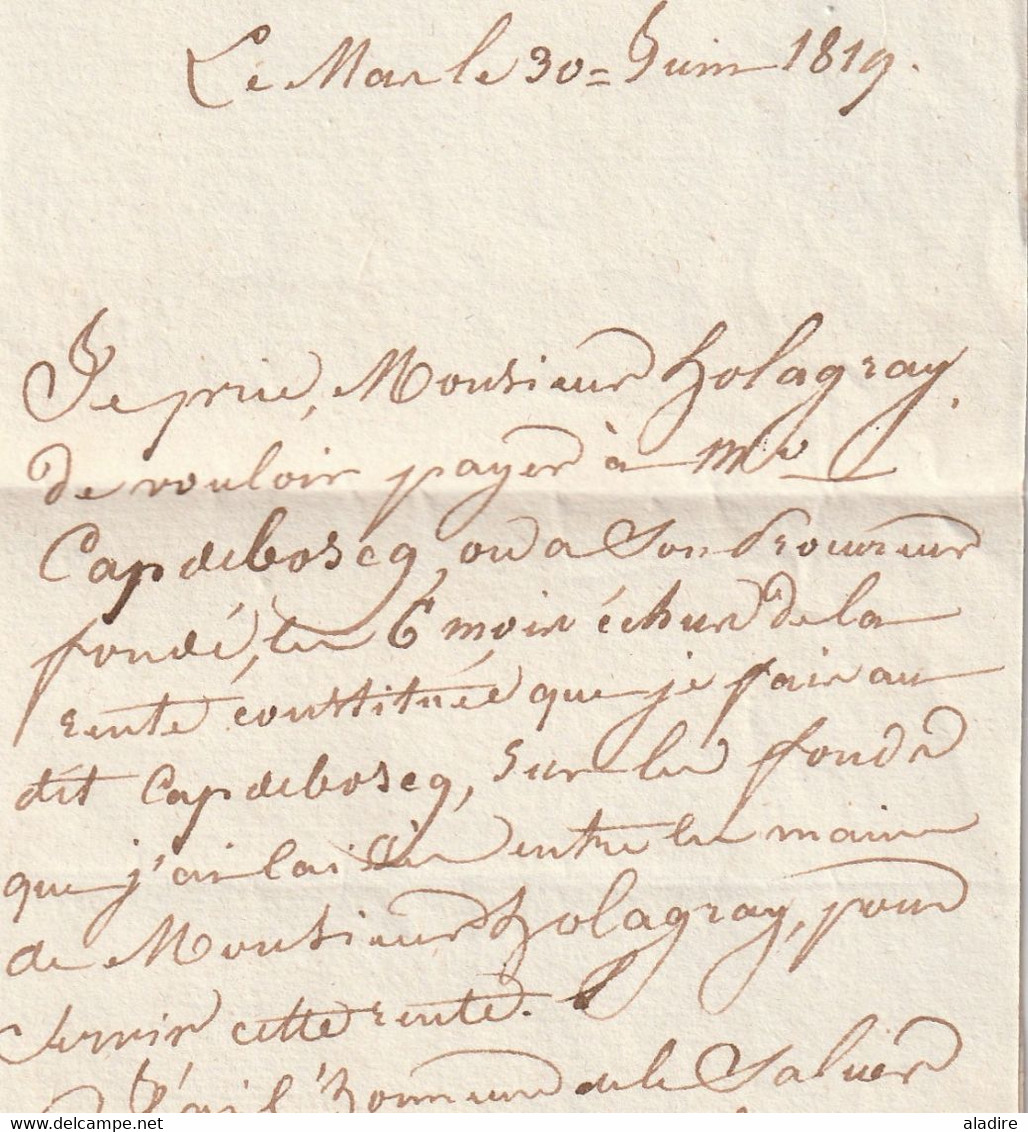 Le Mas le 30= Juin 1819.
Je prie, Monsieur holagray,
de vouloir payer à
Capdeboscq, ou a Son Procureur
fondé, les 6 mois échus de la
rente constituée que je fais au
dit Capdeboscq, sur les fonds
que j'ai laissés entre les mains
de Monsieur holagray, pour
servir cette rente.
J'ai l'honneur de le Saluer
www.delcampe.net
aladire